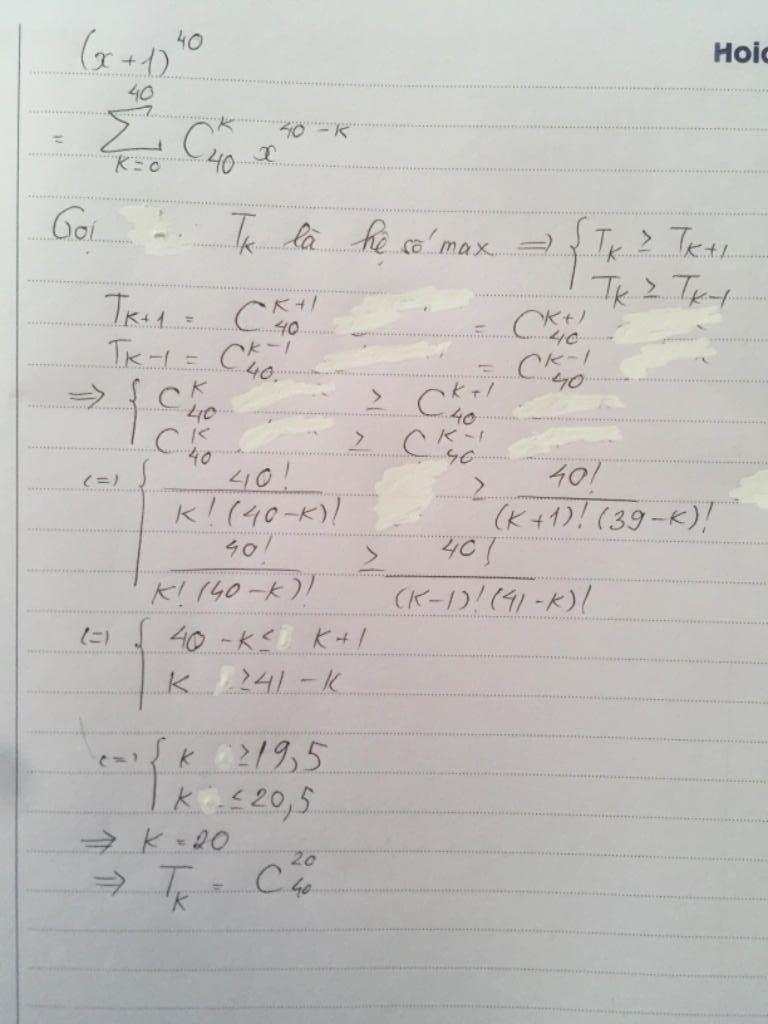 Hoic
(x+1)^40
= ∑_{K=0}^{40} C_{40}^{K} x^{40-K}
Gọi T_K là hệ số max ⇒ { T_K ≥ T_{K+1}
T_K ≥ T_{K-1}
T_{K+1} = C_{40}^{K+1} = C_{40}^{K+1}
T_{K-1} = C_{40}^{K-1} = C_{40}^{K-1}
⇒ { C_{40}^{K} ≥ C_{40}^{K+1}
C_{40}^{K} ≥ C_{40}^{K-1}
(=) { 40! / K!(40-K)! ≥ 40! / (K+1)!(39-K)!
40! / K!(40-K)! ≥ 40! / (K-1)!(41-K)!
(=) { 40-K ≤ K+1
K ≥ 41-K
(=) { K ≥ 19,5
K ≤ 20,5
⇒ K = 20
⇒ T_K = C_{40}^{20}